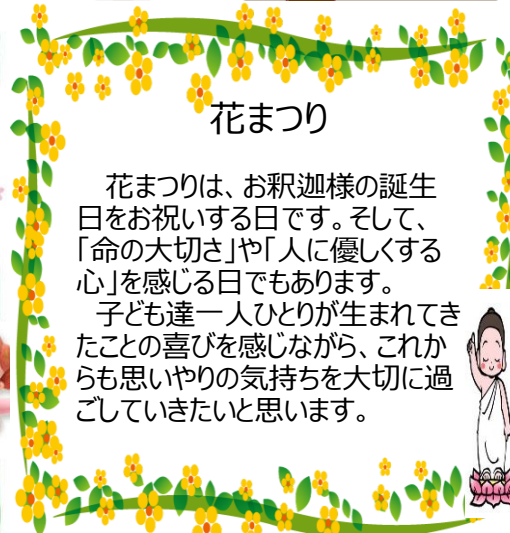 花まつり
花まつりは、お釈迦様の誕生
日をお祝いする日です。そして、
「命の大切さ」や「人に優しくする
心」を感じる日でもあります。
子ども達一人ひとりが生まれてき
たことの喜びを感じながら、これか
らも思いやりの気持ちを大切に過
ごしていきたいと思います。